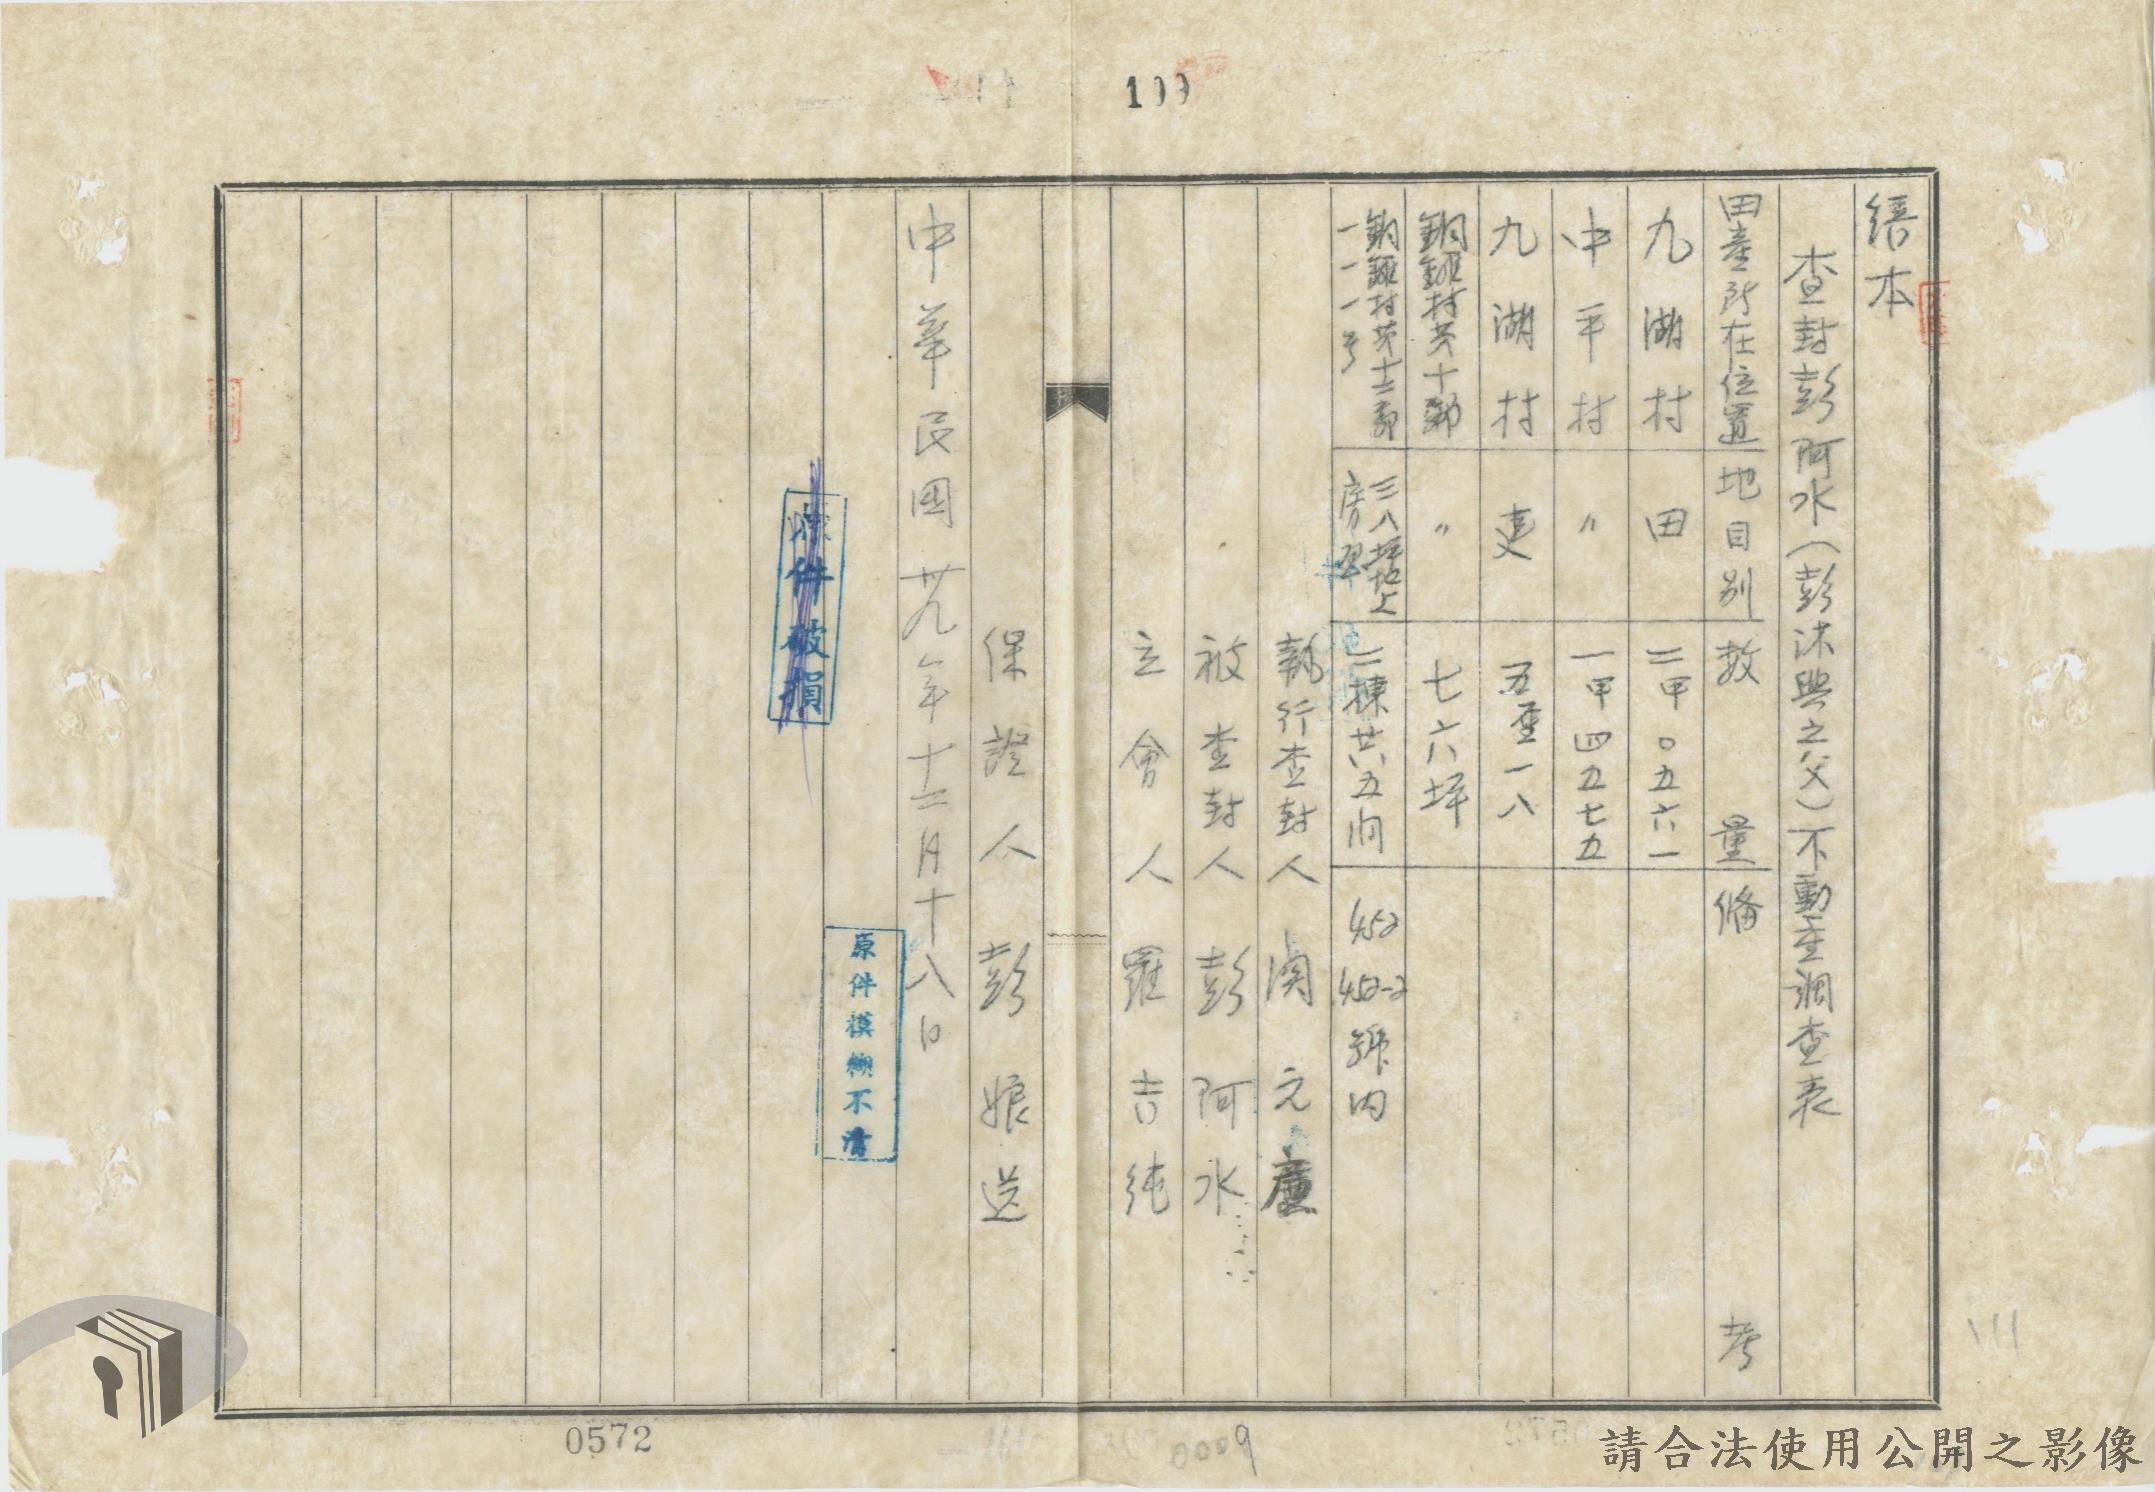 100
繕本
查封彭阿水(彭沐興之父)不動產調查表
田產所在位置 地目別 數量 備考
九湖村 田 二甲0五六一
中平村 〃 一甲四五七五
九湖村 建 五厘一八
銅鑼村芎十鄰 〃 七六坪
銅鑼村芎十二鄰一一一号 三八坪地上房屋 二棟共五间 452 452-2號内
執行查封人 元廬
被查封人 彭阿水
立會人 羅吉純
保證人 彭娘送
中華民國卅九年十二月十八日
原件模糊不清
原件破損
0572
0009
請合法使用公開之影像